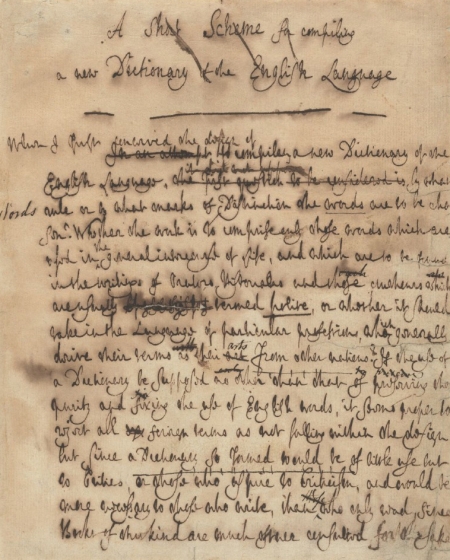 A Short Scheme for compiling
a new Dictionary of the English Language
When I first conceived the design of
In an attempt to compile a new Dictionary of the
English Language, the first question to be considered is, by what
words rule or by what marks of Distinction the words are to be cho
sen. Whether the work is to comprise only those words which are
used in the general intercourse of life, and which are to be found
in the writings of Orators, Historians and those
are usually termed polite, or whether it should
take in the Language of particular professions, which generally
derive their terms as their arts from other nations. If the use of
a Dictionary be supposed no other than that of preserving the
purity and fixing the use of English words, it seems proper to
reject all foreign terms as not falling within the design
but since a Dictionary so formed would be of little use but
to Critics, or those who aspire to Criticism, and would be
more necessary to those who write, than who only read, since
Books of this kind are much oftner consulted for the sake